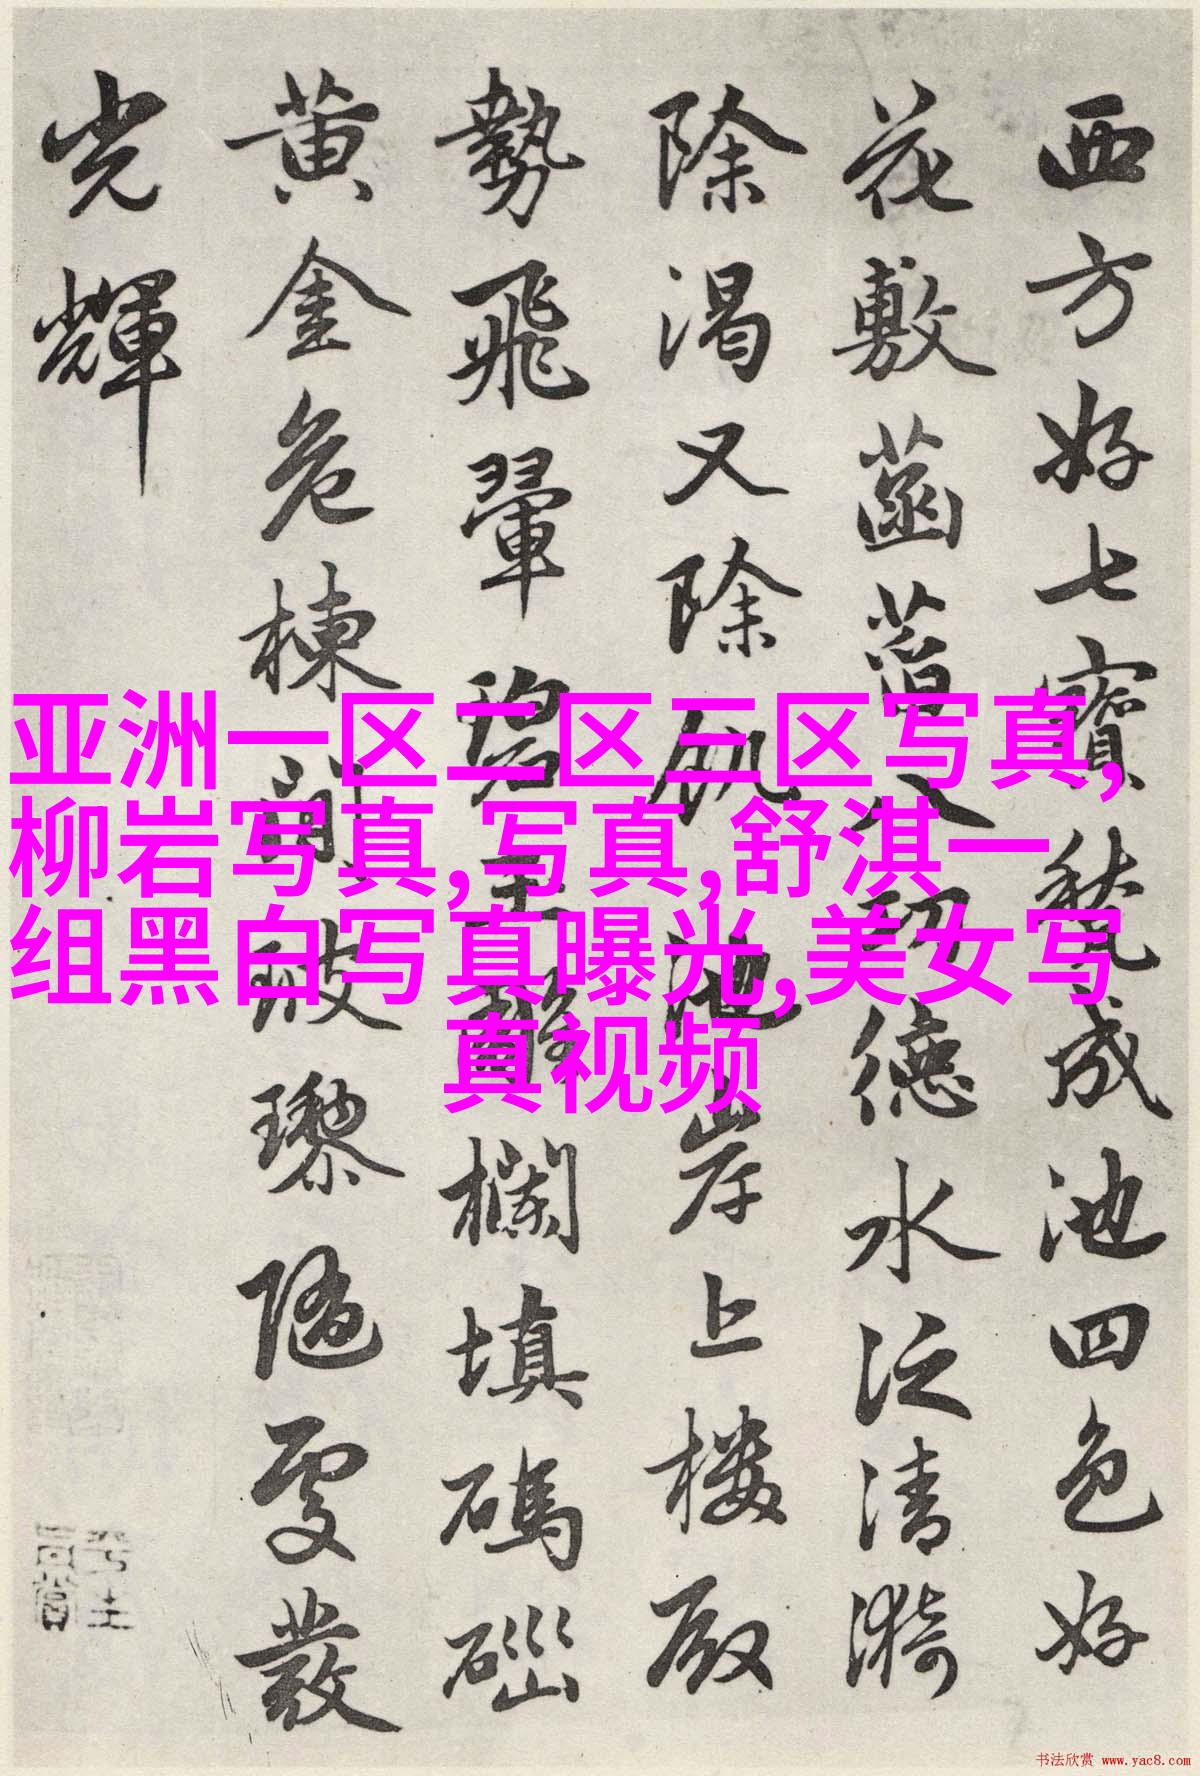 西方好七寶甃成池四色好
花敷菡萏八功德水泛清漪
除渴又除飢池岸上樓殿
勢飛翬碧玉雕欄填碼碯
黃金危棟間玻瓈隨處發
光輝
亚洲一区二区三区写真,
柳岩写真,写真,舒淇一
组黑白写真曝光,美女写
真视频
书法欣赏 www.yac8.com